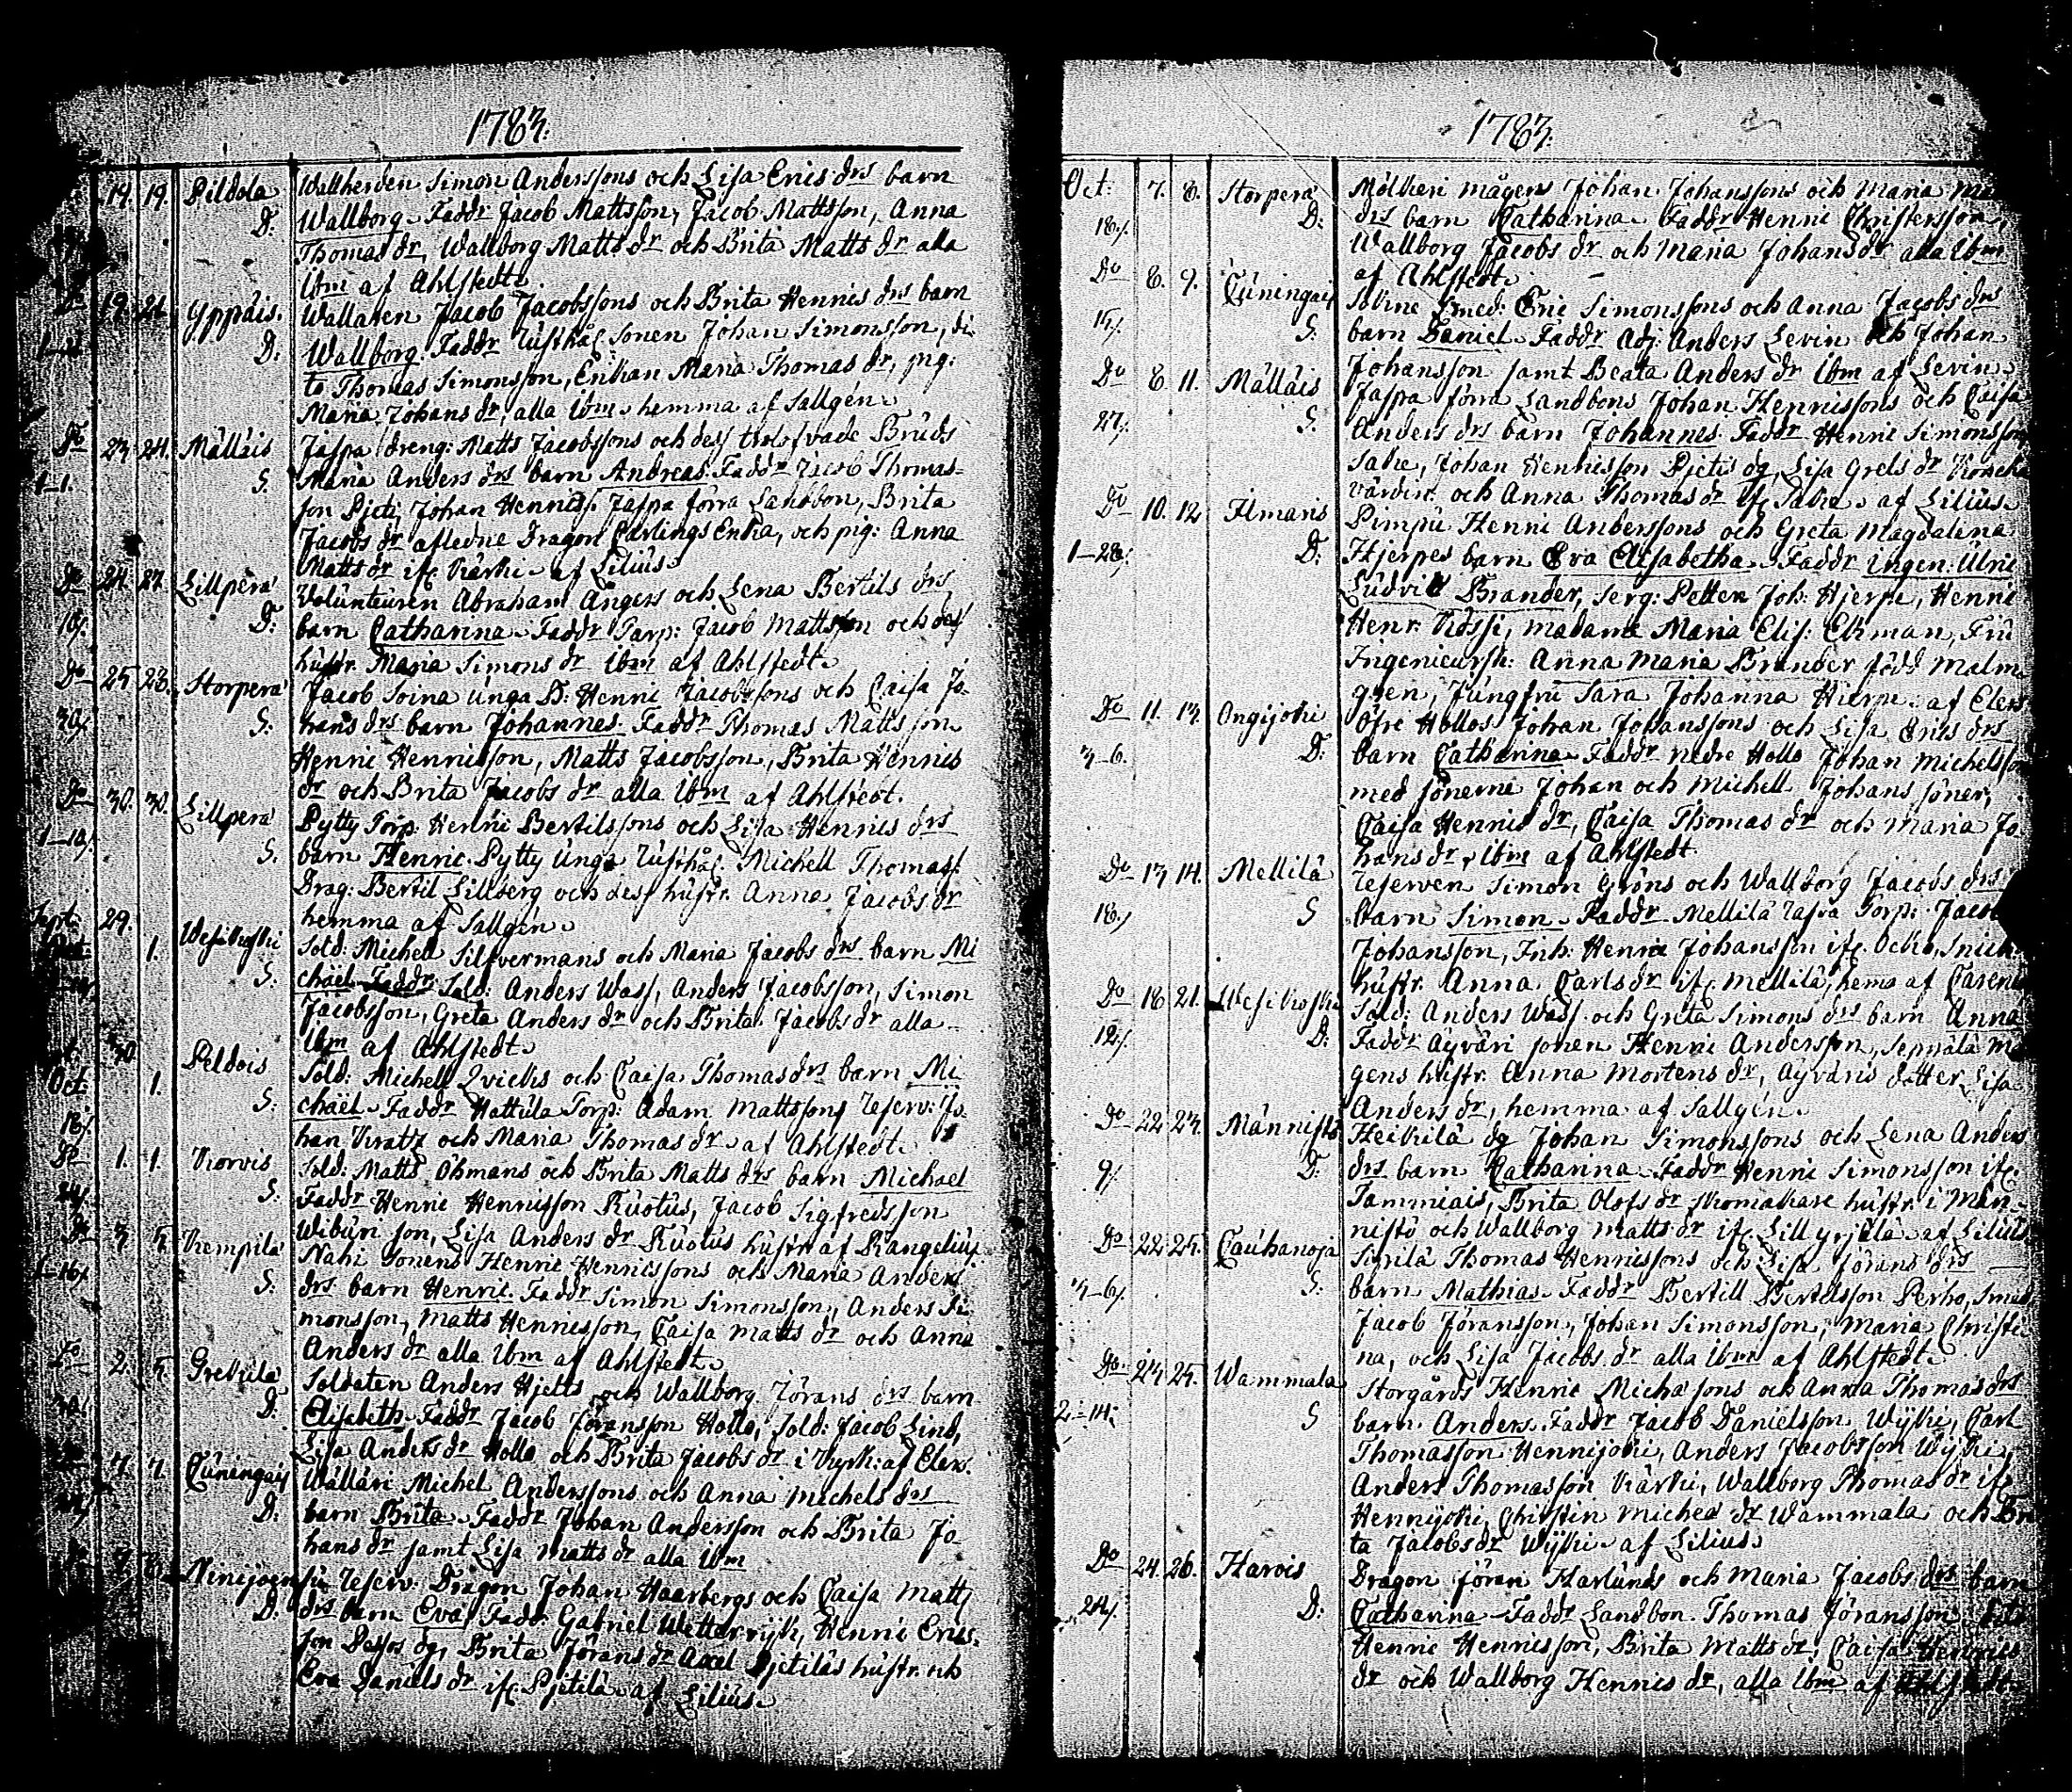 1783.
14. 19. Pildola Wallherden Simon Anderssons och Lisa Erics drs barn
D: Wallborg. Faddr Jacob Mattsson, Jacob Mattsson, Anna
Thomas dr, Wallborg Matts dr och Brita Matts dr alla
ibm af Ahlstedt.
Do 19. 21. Yppäis. Wallaren Jacob Jacobssons och Brita Henrics drs barn
D: Wallborg. Faddr Rusthål. sonen Johan Simonsson, di-
to Thomas Simonsson, Enkan Maria Thomas dr, pig:
Maria Johans dr, alla ibm hemma af Sallgén.
Do 23. 24. Mälläis Jaspa dreng: Matts Jacobssons och dess trolofvade Bruds
1-1. S. Maria Anders drs barn Andreas. Faddr Jacob Thomas-
son Pjeti, Johan Henricss. Jaspa förra Landbon, Brita
Jacobs dr afledne Dragon Carlings Enka, och pig: Anna
Matts dr ifr. Kärki. af Lilius.
Do 24. 27. Lillperä Volunteuren Abraham Ångers och Lena Bertils drs
D: barn Catharina. Faddr Torp: Jacob Mattsson och dess
hustr. Maria Simons dr ibm af Ahlstedt.
Do 25. 28. Storperä Jacob Soina unga B: Henric Jacobssons och Caisa Jo-
30. S: hans drs barn Johannes. Faddr Thomas Mattsson
Henric Henricsson, Matts Jacobsson, Brita Henrics
dr och Brita Jacobs dr alla ibm af Ahlstedt.
Do 30. 30. Lillperä Pytty Torp: Henric Bertilssons och Lisa Henrics drs
S. barn Henric. Pytty unga Rusthål. Michell Thomass.
Drag: Bertil Lillberg och dess hustr. Anna Jacobs dr
hemma af Sallgén.
Sept: 29. 1. Wesikoski Sold: Michell Silfvermans och Maria Jacobs drs barn Mi
S: chael. Faddr Sold: Anders Wass, Anders Jacobsson, Simon
Jacobsson, Greta Anders dr och Brita Jacobs dr alla
ibm af Ahlstedt.
30. Peldois
Oct: 1. Sold: Michell Qvicks och Caisa Thomas drs barn Mi
S: chael. Faddr Hattula Torp: Adam Mattsson, Reserv: Jo-
han Kratz och Maria Thomas dr af Ahlstedt.
Do 1. 1. Korvis Sold: Matts Öhmans och Brita Matts drs barn Michael
S: Faddr Henric Henricsson Ruotus, Jacob Sigfredsson
Wiburi son, Lisa Anders dr Ruotus hustr. af Rangelius.
Do 3. 5. Kempilä Nahi Sonens Henric Henricssons och Maria Anders
S: drs barn Henric. Faddr Simon Simonsson, Anders Si-
monsson, Matts Henricsson, Caisa Matts dr och Anna
Anders dr alla ibm af Ahlstedt.
Do 2. 5. Grekilä Soldaten Anders Hjelts och Wallborg Jörans drs barn
D. Elisabeth. Faddr Jacob Jöransson Hollo, Sold: Jacob Lind,
Lisa Anders dr Hollo och Brita Jacobs dr i Kyrk: af Elers.
7. 7. Cuningais Wällari Michel Anderssons och Anna Michels drs
D: barn Brita. Faddr Johan Andersson och Brita Jo-
hans dr samt Lisa Matts dr alla ibm
Ninijoensu Reserv: Dragon Johan Haarbergs och Caisa Matts
D: drs barn Eva. Faddr Gabriel Wettervik, Henric Erics-
son Passos dg, Brita Jörans dr Axel Pjetiläs hustr. och
Eva Daniels dr ifr. Pjetilä. af Lilius.
1783.
Oct: 7. 8. Storperä Mölkeri mågens Johan Johanssons och Maria
18. D: drs barn Catharina. Faddr Henric Christersson,
Wallborg Jacobs dr och Maria Johans dr alla ibm
af Ahlstedt.
Do 8. 9. Cuningais Sokne smed: Eric Simonssons och Anna Jacobs drs
S: barn Daniel. Faddr Adj: Anders Levin och Johan
Johansson samt Beata Anders dr ibm af Levin.
Do 8. 11. Mälläis Jaspa förra Landbons Johan Henricssons och Caisa
27. S. Anders drs barn Johannes. Faddr Henric Simonsson
Sake, Johan Henricsson Pjetis dg, Lisa Grels dr
och Anna Thomas dr ifr. Sake. af Lilius.
Do 10. 12. Ilmaris Pimpu Henric Anderssons och Greta Magdalena
1-28. D: Hjerpes barn Eva Elisabetha. Faddr Ingen: Ulric
Ludvik Brander, Serg: Petter Joh: Hjerpe, Henric
Henr: Kossi, Madame Maria Elis: Ekman, Fru
Ingenieursk: Anna Maria Brander född Malm-
green, Jungfru Sara Johanna Hierpe. af Elers
Do 11. 13. Ongijoki Öfre Hollos Johan Johanssons och Lisa Erics drs
3-6. D: barn Catharina. Faddr nedre Hollo Johan Michelsson
med sönerne Johan och Michell Johans söner,
Caisa Henrics dr, Caisa Thomas dr och Maria Jo-
hans dr, ibm af Ahlstedt.
Do 13. 14. Mellilä Reserven Simon Gröns och Wallborg Jacobs drs
18. S barn Simon. Faddr Mellilä Raspa Torp: Jacob
Johansson, Inh: Henric Johansson ifr. Ocko, Snick.
hustr. Anna Carls dr ifr. Mellilä, hema af Carenius
Do 18. 21. Wesikoski Sold: Anders Wass. och Greta Simons drs barn Anna
12. D: Faddr Äyväri sonen Henric Andersson, Seppälä Må
gens hustr. Anna Mortens dr, Äyväris dotter Lisa
Anders dr, hemma af Sallgén.
Do 22. 23. Männistö Heikilä dg Johan Simonssons och Lena Anders
9. D: drs barn Catharina. Faddr Henric Simonsson ifr.
Tammiais, Brita Olofs dr Skomakare hustr. i Män-
nistö och Wallborg Matts dr ifr. Lill yrjälä. af Lilius.
Do 22. 25. Cauhanoja Simila Thomas Henricssons och Lisa Jörans drs
3-6. S: barn Mathias. Faddr Bertill Bertilsson Perho, Smed
Jacob Jöransson, Johan Simonsson, Maria Christi-
na, och Lisa Jacobs dr alla ibm af Ahlstedt.
Do 24. 25. Wammala Storgårds Henric Michas sons och Anna Thomas drs
2-14. S barn Anders. Faddr Jacob Danielsson Wijki, Carl
Thomasson Hennijoki, Anders Jacobsson Wijki,
Anders Thomasson Kärki, Wallborg Thomas dr ifr
Hennijoki, Christin Michea dr Wammala och Bri
ta Jacobs dr Wijki. af Lilius.
Do 24. 26. Harois Dragon Jöran Harlunds och Maria Jacobs drs barn
24. D: Catharina. Faddr Landbon Thomas Jöransson,
Henric Henricsson, Brita Matts dr, Caisa Henrics
dr och Wallborg Henrics dr, alla ibm af Ahlstedt.